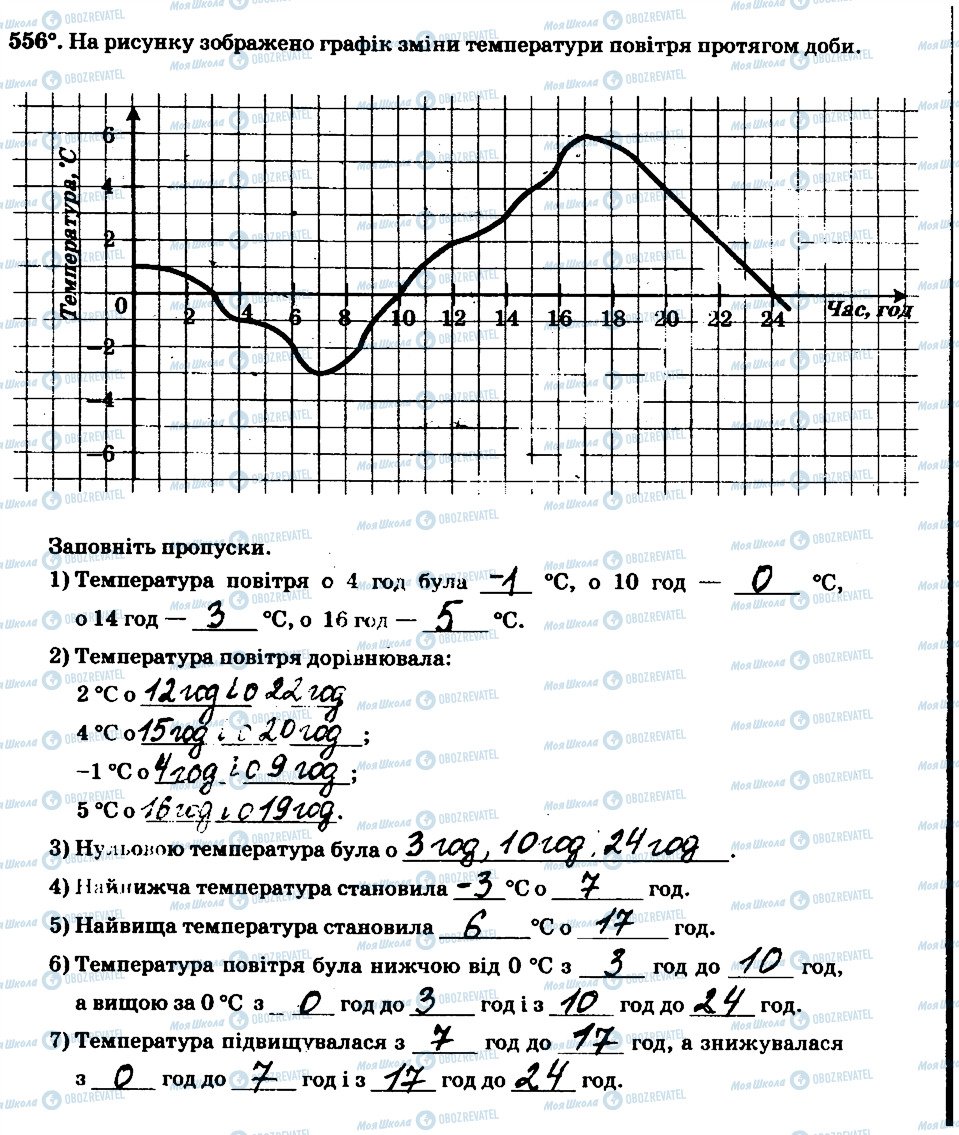 556°. На рисунку зображено графік зміни температури повітря протягом доби.
Температура, °С
6
4
2
0
−2
−4
−6
2 4 6 8 10 12 14 16 18 20 22 24
Час, год
Заповніть пропуски.
1) Температура повітря о 4 год була −1 °С, о 10 год — 0 °С,
о 14 год — 3 °С, о 16 год — 5 °С.
2) Температура повітря дорівнювала:
2 °С о 12 год і о 22 год
4 °С о 15 год і о 20 год ;
−1 °С о 4 год і о 9 год ;
5 °С о 16 год і о 19 год.
3) Нульовою температура була о 3 год, 10 год, 24 год.
4) Найнижча температура становила −3 °С о 7 год.
5) Найвища температура становила 6 °С о 17 год.
6) Температура повітря була нижчою від 0 °С з 3 год до 10 год,
а вищою за 0 °С з 0 год до 3 год і з 10 год до 24 год.
7) Температура підвищувалася з 7 год до 17 год, а знижувалася
з 0 год до 7 год і з 17 год до 24 год.
Моя Школа OBOZREVATEL